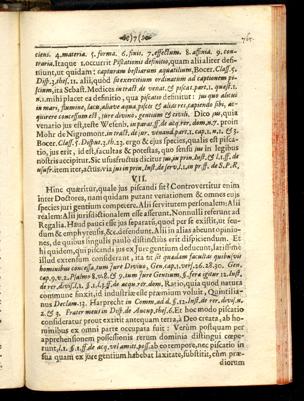 )7(
765.
tiens. 4. materia. 5. forma. 6. finis. 7. effectum. 8. affinia. 9. con-
traria. Itaque 1. occurrit Piscationis definitio, quam alii aliter defi-
niunt, ut quidam: capturam bestiarum aquatilium, Bocer. Class. 5.
Disp. 3. thes. 11. alii, quod sit exercitium ordinatum ad captionem pi-
scium, ita Sebast. Medices in tract. de venat. & piscat. part. 1. quæst. 1.
n. 1. mihi placet ea definitio, qua piscatio definitur: jus quo alicui
in mari, flumine, lacu, alióve aqua pisces & aliàs res, capiendo sibi, ac-
quirere concessum est, jure divino, gentium & civili. Dico jus, quia
venatio jus est, teste Wesenb. in parat. ff. de acq. rer. dom. n. 7. proin
Mohr de Nigromont. in tract. de jur. venand. part. 1. cap. 1. n. 1. & 3.
Bocer. Class. 5. Disput. 3. th. 23. ergo & ejus species, qualis est pisca-
tio, jus erit, id est, facultas & potestas, quo sensu jus in legibus
nostris accipitur. Sic ususfructus dicitur jus, in prin. Inst. & l. 1. ff. de
usufr. item iter, actus, via jus in prin. Inst. de serv. l. 1. in pr. ff. de S. P. R.
VII.
Hinc quæritur, quale jus piscandi sit? Controvertitur enim
inter Doctores, nam quidam putant venationem & omnes ejus
species juri gentium competere. Alii servitutem personalem: Alii
realem: Alii jurisdictionalem esse asserunt. Nonnulli referunt ad
Regalia. Haud pauci esse jus separatum, quod per se existit, ut feu-
dum & emphyteusis, &c. defendunt. Alii in alias abeunt opinio-
nes, de quibus singulis paulò distinctiùs erit dispiciendum. Et
hi quidem, qui piscandi jus ex Jure gentium deducunt, latissimè
illud extendum considerant, ita ut sit quædam facultas quibusvis
hominibus concessa, tum jure Divino, Gen. cap. 1. vers. 26. 28. 30. Gen.
cap. 9. v. 2. Psalmo 8. v. 8. & 9. tum jure Gentium, §. feræ igitur 12. Inst.
de rer. divis. l. 1. §. 1. l. 3. ff. de acqu. rer. dom. Ratio, quia quod natura
commune finxit, id industriæ esse præmium voluit, Quintilia-
nus Declam. 13. Harprecht in Comm. ad d. §. 12. Inst. de rer. divis. n.
2. & 3. Frater meus in Disp. de Aucup. thes. 6. Et hoc modo piscatio
consideratur prout extitit antequam terra, à Deo creata, ab ho-
minibus ex omni parte occupata fuit: Verùm postquam per
apprehensionem possessionis rerum dominia distingui cœpe-
runt, l. 1. §. 1. ff. de acq. vel amitt. poss. ab eo tempore, nec piscatio in
sua quam ex jure gentium habebat laxitate, substitit, cùm præ-
diorum